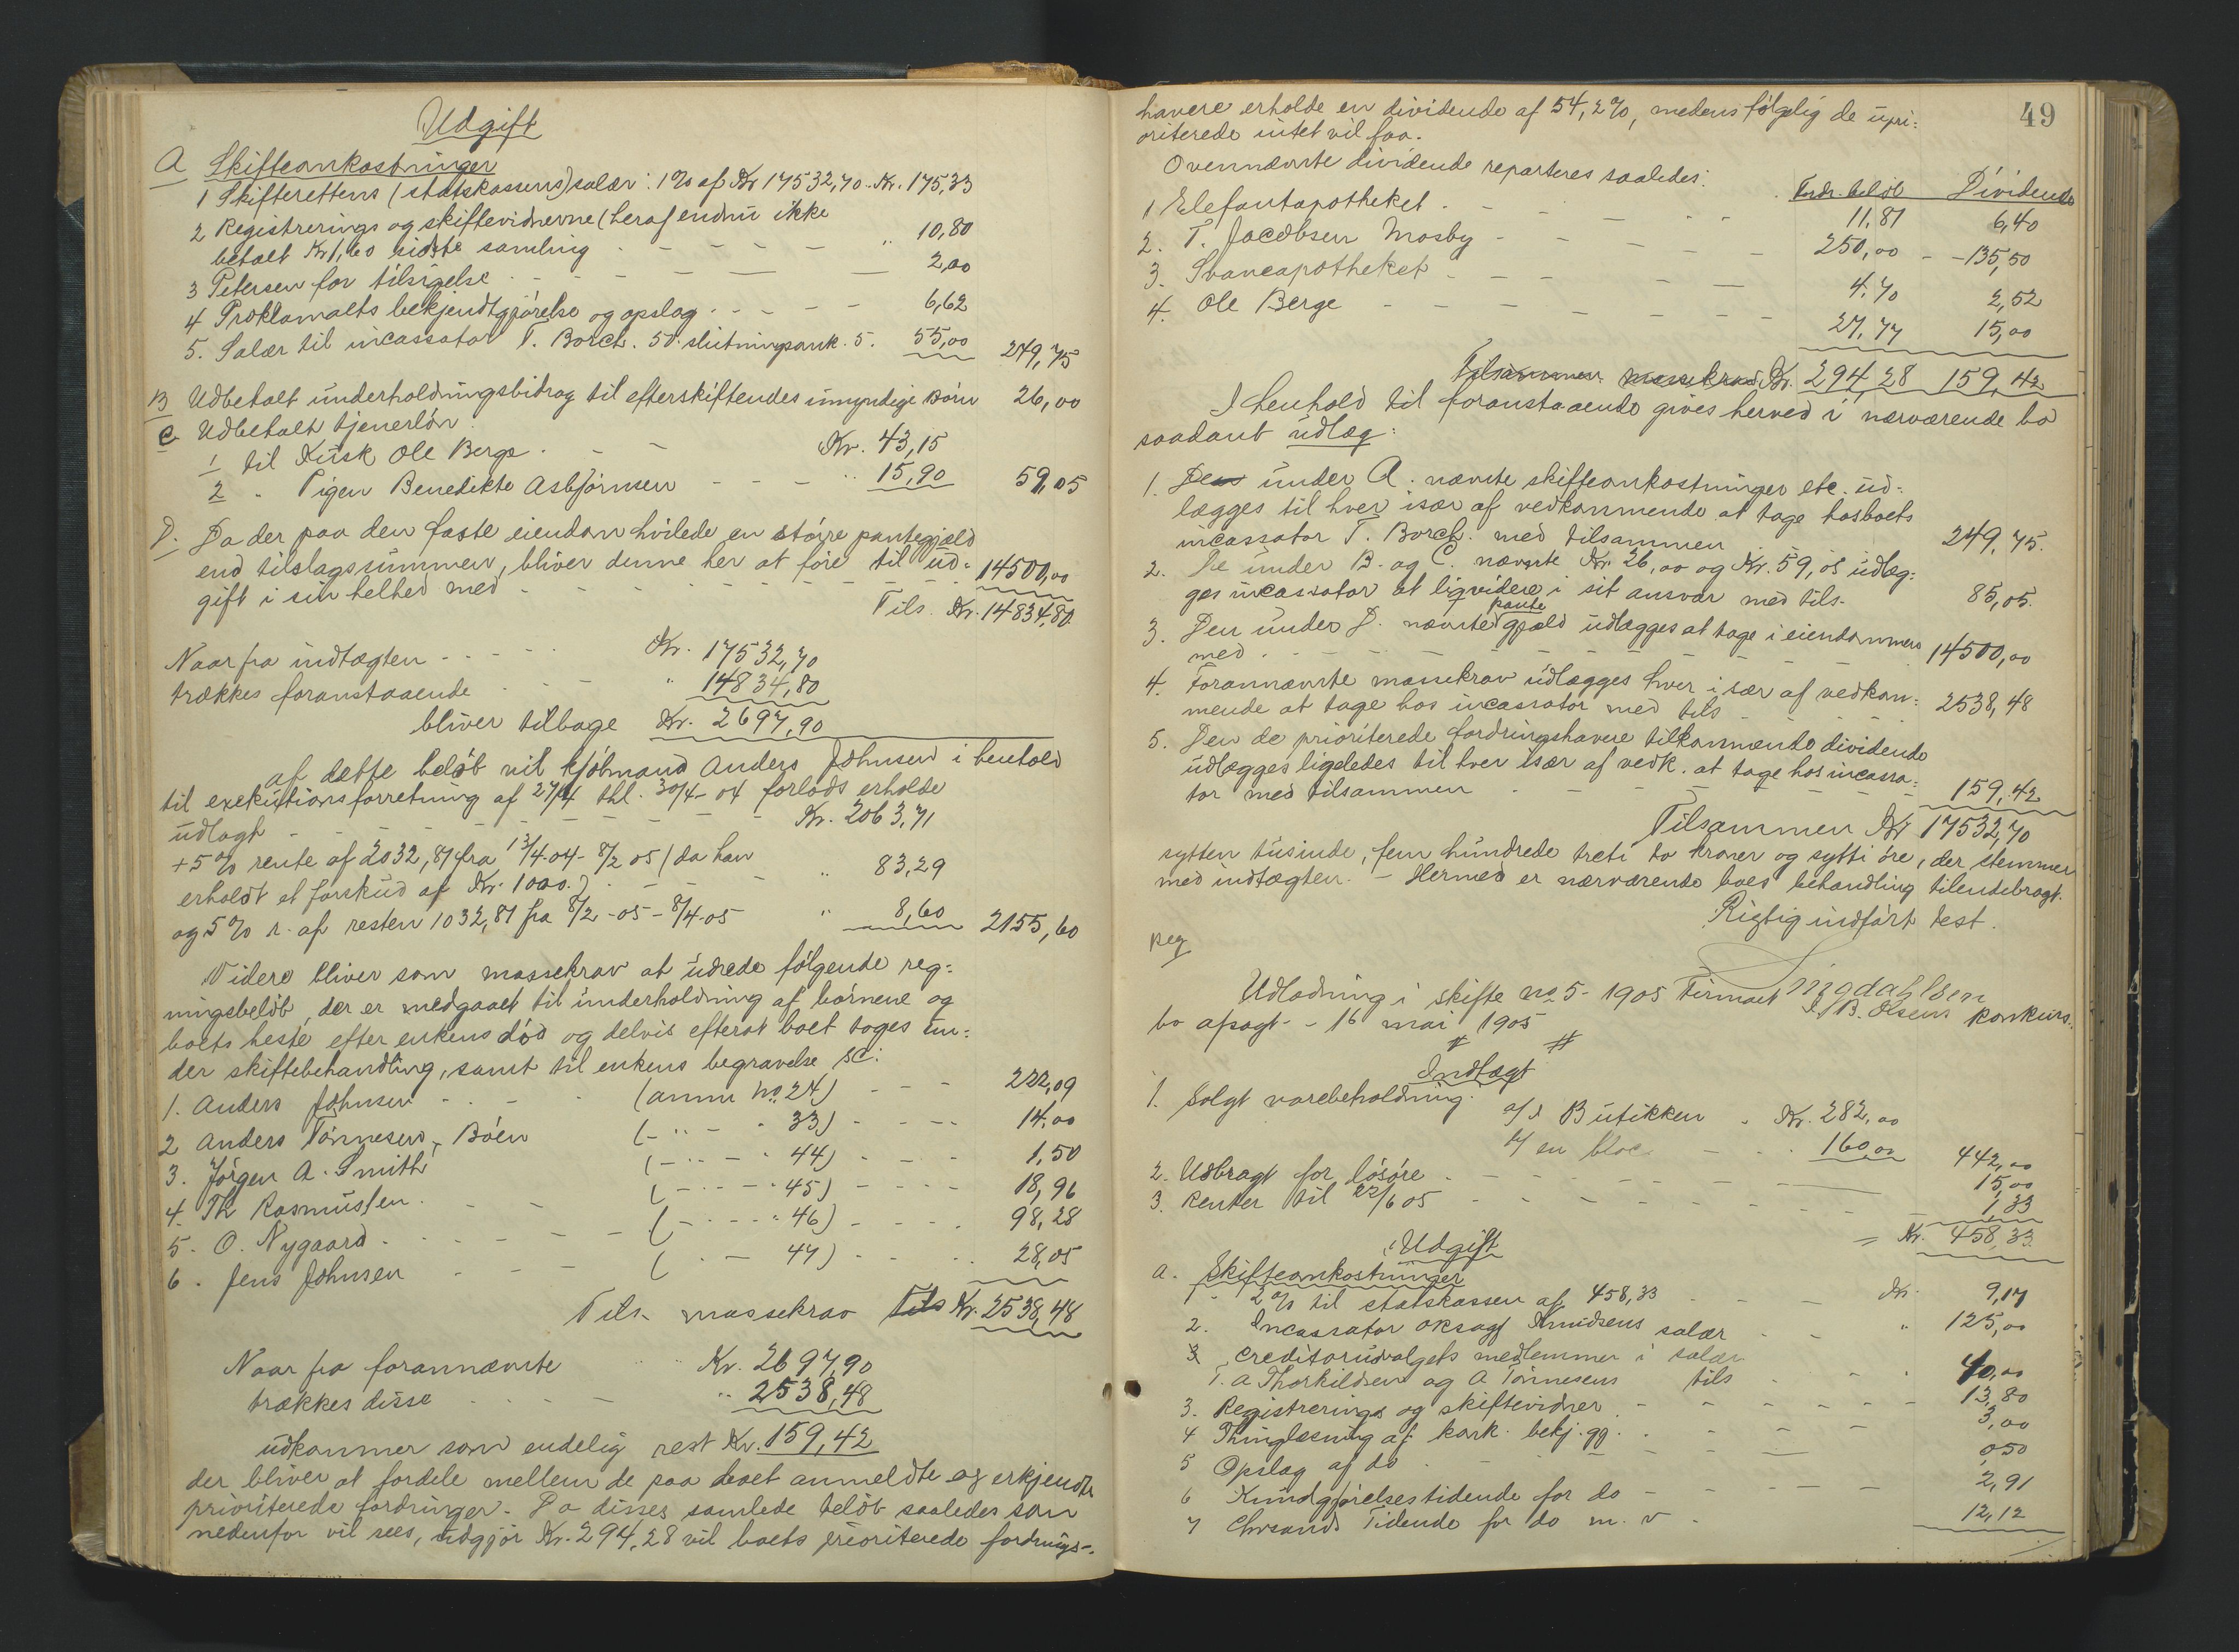 Udgift
A Skifteomkostninger
1 Skifterettens (statskassens) salær: 1% af Kr 17532,70. Kr. 175,33
2 Registrerings og skiftevidnerne (heraf endnu ikke
betalt Kr 1,60 sidste samling - - - - - " 10,80
3 Petersen for tilsigelse - - - - - 2,00
4 Proklamaets bekjendtgjørelse og opslag - - - - 6,62
5. Salær til incassator T. Borch. 50. slutningsomk. 5. 55,00 249,75
B Udbetalt underholdningsbidrag til efterskiftendes umyndige børn 26,00
C Udbetalt tjenerløn.
1 til Kusk Ole Berge - - Kr. 43,15
2 " Pigen Benedikte Asbjørnsen - - - " 15,90 59,05
D. Da der paa den faste eiendom hvilede en større pantegjæld
end tilslagssummen, bliver denne her at føre til ud=
gift i sin helhed med - - - - - - 14500,00
Tils. Kr. 14834,80
Naar fra indtægten - - - - Kr. 17532,70
trækkes foranstaaende - - - " 14834,80
bliver tilbage Kr. 2697,90
af dette beløb vil kjøbmand Anders Johnsen i henhold
til exekutionsforretning af 27/4 thl. 30/4-04 forlods erholde
udlagt - - - - - - - Kr. 2063,71
+ 5% rente af 2032,81 fra 13/4-04 - 8/2 05 (da han
erholdt et forskud af Kr. 1000.) - - - " 83,29
og 5% r. af resten 1032,81 fra 8/2-05 - 8/4-05 " 8,60 2155,60
Videre bliver som massekrav at udrede følgende reg=
ningsbeløb, der er medgaaet til underholdning af børnene og
boets heste efter enkens død og delvis efterat boet toges un=
der skiftebehandling, samt til enkens begravelse, sc:
1. Anders Johnsen - - - (anm no. 24) - - - 222,09
2 Anders Tønnesen, Bóen (- " - " 33) - - - 14,00
3. Jørgen A. Smith (- " - " 44) - - - 1,50
4. Th Rasmussen. - - (- " - " 45) - - - 18,96
5. O. Nygaard - - - - (- " - " 46) - - - 98,28
6. Jens Johnsen - - - ( " - 47) - - - 28,05
Tils. massekrav Tils Kr. 2538,48
Naar fra forannævnte " " Kr. 2697,90
trækkes disse - - - - " 2538,48
udkommer som endelig rest Kr. 159,42
der bliver at fordele mellem de paa boet anmeldte og erkjendte
prioriterede fordringer. Da disses samlede beløb saaledes som
nedenfor vil sees, udgjør Kr. 294,28 vil boets prioriterede fordrings-
49
havere erholde en dividende af 54,2%, medens følgelig de upri=
oriterede intet vil faa.
Ovennævnte dividende reparteres saaledes:
Fordr. beløb Dividende
1 Elefantapotheket - - - - - 11,81 6,40
2. T. Jacobsen Mosby - - - - - 250,00 - - 135,50
3. Svaneapotheket - - - - - 4,70 2,52
4. Ole Berge - - - - - 27,77 15,00
Tilsammen massekrav Kr. 294,28 159,42
I henhold til foranstaaende gives herved i nærværende bo
saadant udlæg:
1. De under A. nævnte skifteomkostninger etc. ud=
lægges til hver især af vedkommende at tage hos boets
incassator T. Borch. med tilsammen 249,75.
2. De under B. og C. nævnte Kr. 26,00 og Kr. 59,05 udlæg=
ges incassator at liqvidere i sit ansvar med tils- 85,05.
3. Den under D. nævnte pantegjæld udlægges at tage i eiendommen
med - - - - - - - 14500,00
4. Forannævnte massekrav udlægges hver i sær af vedkom=
mende at tage hos incassator med tils - - - 2538,48
5. Den de prioriterede fordringshavere tilkommende dividende
udlægges ligeledes til hver især af vedk. at tage hos incassa=
tor med tilsammen - - - - - 159,42
Tilsammen Kr 17532,70
sytten tusinde, fem hundrede treti to kroner og sytti øre, der stemmer
med indtægten. - Hermed er nærværende boes behandling tilendebragt.
Rigtig indført test.
Reg
Udlodning i skifte no 5 - 1905 Firmaet J. B. Olsens konkurs.
bo afsagt - 16 mai 1905
Indtægt
1. Solgt varebeholdning:
a/ i Butikken . Kr. 282,00
b/ en bloc - - - 160,00 442,00
2. Udbragt for løsøre - - - - - 15,00
3. Renter til 22/6 05 - - - - - 1,33
= Kr. 458,33.
Udgift
a. Skifteomkostninger
1 " 2% til statskassen af 458,33 - - - Kr. 9,17
2. Incassator oksagf Knudsens salær - - " 125,00
3 Creditorudvalgets medlemmer i salær
T. A Thorkildsen og A Tønnesens tils - - - 40,00
3. Registrerings og skiftevidner - - - - - 13,80
4 Thinglæsning af konk. bekj. gg. - - - - 3,00
5 Opslag af do - - - - - 0,50
6 Kundgjørelsestidende for do - - - - - 2,91
7 Chrsands Tidende for do m. v - 12,12